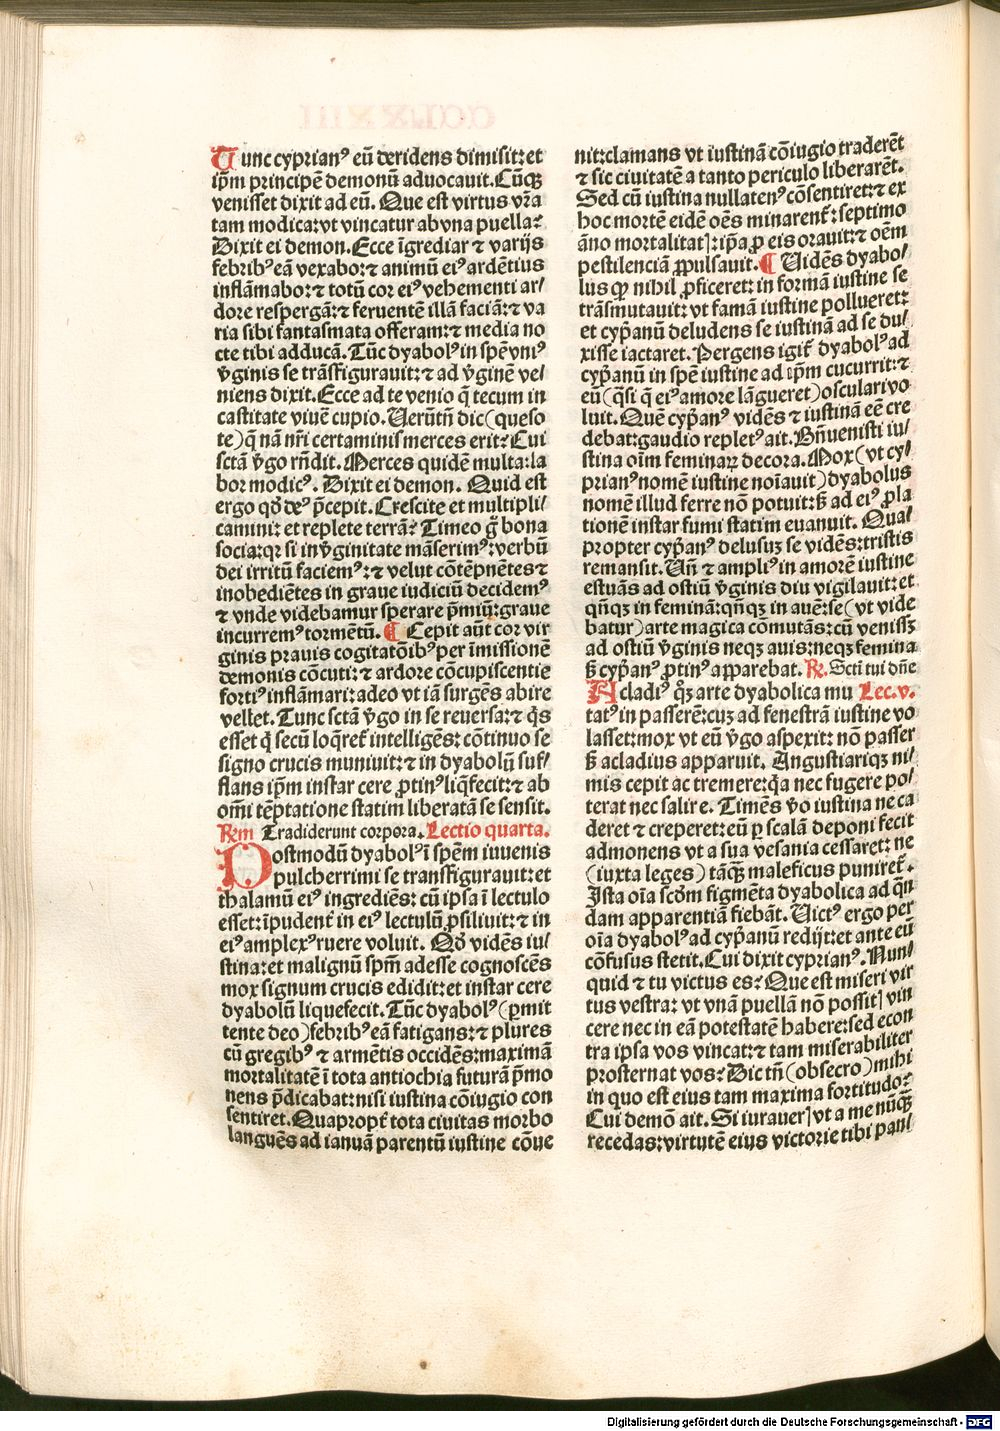 Tunc cyprianꝰ eū deridens dimisit: et
ip̄m principē demonū aduocauit. Cūqꝫ
venisset dixit ad eū. Que est virtus vr̄a
tam modica: vt vincatur ab vna puella?
Dixit ei demon. Ecce īgrediar ⁊ varijs
febribꝰ eā vexabo: ⁊ animū eiꝰ ardētius
inflāmabo: ⁊ totū cor eiꝰ vehementi ar/
dore respergā: ⁊ feruentē illā faciā: ⁊ va
ria sibi fantasmata offeram: ⁊ media no
cte tibi adducā. Tūc dyabolꝰ in spē vniꝰ
v̄ginis se trāsfigurauit: ⁊ ad v̄ginē ve/
niens dixit. Ecce ad te venio q̄ tecum in
castitate viuē cupio. Uerūtn̄ dic (queso
te) q̄ nā nr̄i certaminis merces erit? Cui
sctā v̄go rn̄dit. Merces quidē multa: la
bor modicꝰ. Dixit ei demon. Quid est
ergo qd̄ deꝰ p̄cepit. Crescite et multipli/
camini: et replete terrā? Timeo g̊ bona
socia: qꝛ si in v̄ginitate māserimꝰ: verbū
dei irritū faciemꝰ: ⁊ velut cōtēpnētes ⁊
inobediētes in graue iudiciū decidemꝰ
⁊ vnde videbamur sperare p̄miū: graue
incurremꝰ tormētū. ¶ Cepit aūt cor vir
ginis prauis cogitatōibꝰ per īmissionē
demonis cōcuti: ⁊ ardore cōcupiscentie
fortiꝰ inflāmari: adeo vt iā surgēs abire
vellet. Tunc sctā v̄go in se reuersa: ⁊ q̄s
esset q̄ secū loq̄reť intelligēs: cōtinuo se
signo crucis muniuit: ⁊ in dyabolū suf/
flans ip̄m instar cere ꝓtinꝰ liq̄fecit: ⁊ ab
om̄i tēptatione statim liberatā se sensit.
Rm̄ Tradiderunt corpora. Lectio quarta.
Postmodū dyabolꝰ ī spēm iuuenis
pulcherrimi se transfigurauit: et
thalamū eiꝰ ingrediēs: cū ipsa ī lectulo
esset: īpudenť in eiꝰ lectulū ꝓsiliuit: ⁊ in
eiꝰ amplexꝰ ruere voluit. Qd̄ vidēs iu/
stina: et malignū sp̄m adesse cognoscēs
mox signum crucis edidit: et instar cere
dyabolū liquefecit. Tūc dyabolꝰ (ꝑmit
tente deo) febribꝰ eā fatigans: ⁊ plures
cū gregibꝰ ⁊ armētis occidēs: maximā
mortalitatē ī tota antiochia futurā p̄mo
nens p̄dicabat: nisi iustina cōiugio con
sentiret. Quapropť tota ciuitas morbo
languēs ad ianuā parentū iustine cōue
nit: clamans vt iustinā cōiugio traderēt
⁊ sic ciuitatē a tanto periculo liberarēt.
Sed cū iustina nullatenꝰ cōsentiret: ⁊ ex
hoc mortē eidē oēs minarenť: septimo
āno mortalitatꝭ: ip̄a ꝓ eis orauit: ⁊ oēm
pestilenciā ꝓpulsauit. ¶ Uidēs dyabo/
lus qꝙ nihil ꝓficeret: in formā iustine se
trāsmutauit: vt famā iustine pollueret:
et cyp̄anū deludens se iustinā ad se du/
xisse iactaret. Pergens igiť dyabolꝰ ad
cyp̄anū in spē iustine ad ip̄m cucurrit: ⁊
eū (q̄si q̄ eiꝰ amore lāgueret) osculari vo
luit. Quē cyp̄anꝰ vidēs ⁊ iustinā eē cre
debat: gaudio repletꝰ ait. Bn̄uenisti iu/
stina oīm feminaꝝ decora. Mox (vt cy/
prianꝰ nomē iustine noīauit) dyabolus
nomē illud ferre nō potuit: ß ad eiꝰ ꝓla
tionē instar fumi statim euanuit. Qua/
propter cyp̄anꝰ delusuꝫ se vidēs: tristis
remansit. Un̄ ⁊ ampliꝰ in amorē iustine
estuās ad ostiū v̄ginis diu vigilauit: et
qn̄qꝫ in feminā: qn̄qꝫ in auē: se (vt vide
batur) arte magica cōmutās: cū venissꝫ
ad ostiū v̄ginis neqꝫ auis: neqꝫ femina
ß cyp̄anꝰ ꝓtinꝰ apparebat. R. Scti tui dn̄e
Acladiꝰ q̊ꝫ arte dyabolica mu Lec. v.
tatꝰ in passerē: cuꝫ ad fenestrā iustine vo
lasset: mox vt eū v̄go aspexit: nō passer
ß acladius apparuit. Angustiariqꝫ ni/
mis cepit ac tremere: q̄a nec fugere po/
terat nec salire. Timēs v̄o iustina ne ca
deret ⁊ creperet: eū ꝑ scalā deponi fecit
admonens vt a sua vesania cessaret: ne
(iuxta leges) tāqꝫ maleficus punireť.
Ista oīa scd̄m figmēta dyabolica ad qn̄
dam apparentiā fiebāt. Uictꝰ ergo per
oīa dyabolꝰ ad cyp̄anū redijt: et ante eū
cōfusus stetit. Cui dixit cyprianꝰ. Nun/
quid ⁊ tu victus es? Que est miseri vir
tus vestra: vt vnā puellā nō possitꝭ vin
cere nec in eā potestatē habere: sed econ
tra ipsa vos vincat: ⁊ tam miserabiliter
prosternat vos? Dic tn̄ (obsecro) mihi
in quo est eius tam maxima fortitudo?
Cui demō ait. Si iurauerꝭ vt a me nūqꝫ
recedas: virtutē eius victorie tibi pan/
Digitalisierung gefördert durch die Deutsche Forschungsgemeinschaft - DFG